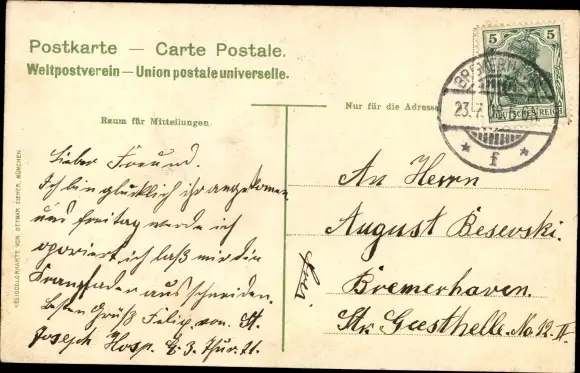 Postkarte — Carte Postale.
Weltpostverein — Union postale universelle.
Raum für Mitteilungen
Nur für die Adresse
5 5
DEUTSCHES REICH
BREMERHAVEN
23.7.
f
HELIOCOLORKARTE VON OTTMAR ZIEHER, MÜNCHEN
Lieber Freund.
Ich bin glücklich ihr angekomen
und freitag werde ich
operiert ich laß mir den
aus schneiden.
Besten Grüß Felix von St.
Joseph Hosp. E. 3.
An Herrn
August Besevski.
Bremerhaven.
Str. Geesthelle. No. 12. II.
hier.